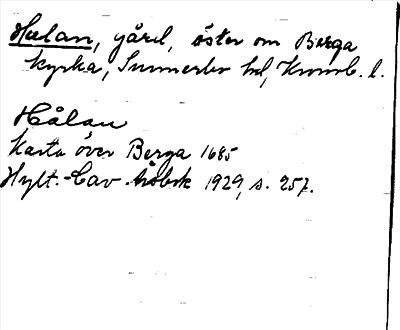 Hulan, gård, öster om Berga
kyrka, Sunnerbo hd, Kronob. l.
Hålan
Karta över Berga 1685
Hylt.-Cav. årsbok 1929, s. 257.